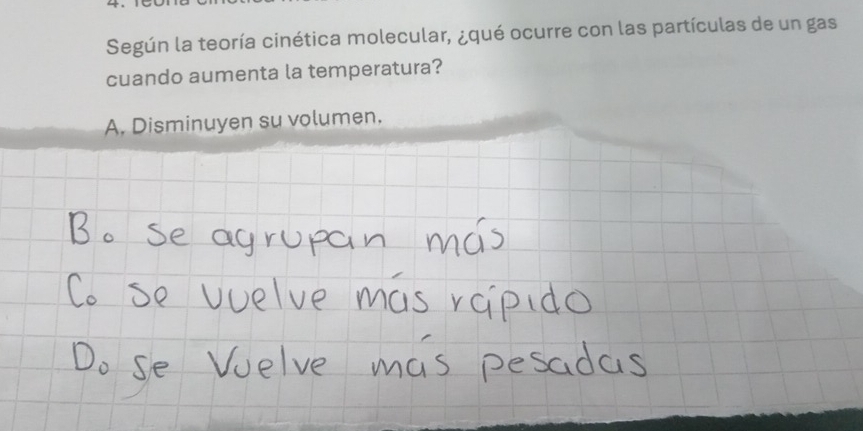 Según la teoría cinética molecular, ¿qué ocurre con las partículas de un gas
cuando aumenta la temperatura?
A. Disminuyen su volumen.
B. se agrupan más
C. se vuelve más rápido
D. se Vuelve más pesadas